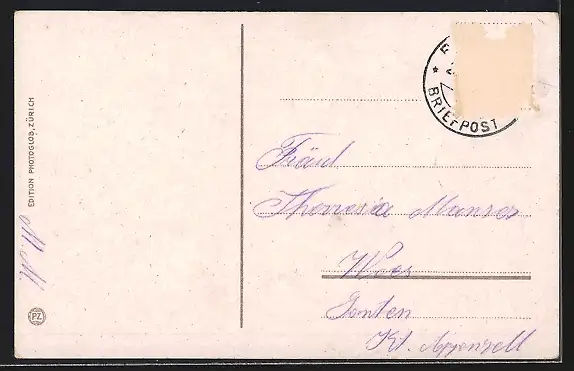 EDITION PHOTOGLOB, ZÜRICH
M. M.
PZ
BRIEFPOST
Fräul
Theresia Manser
Wees
Gonten
Kt. Appenzell